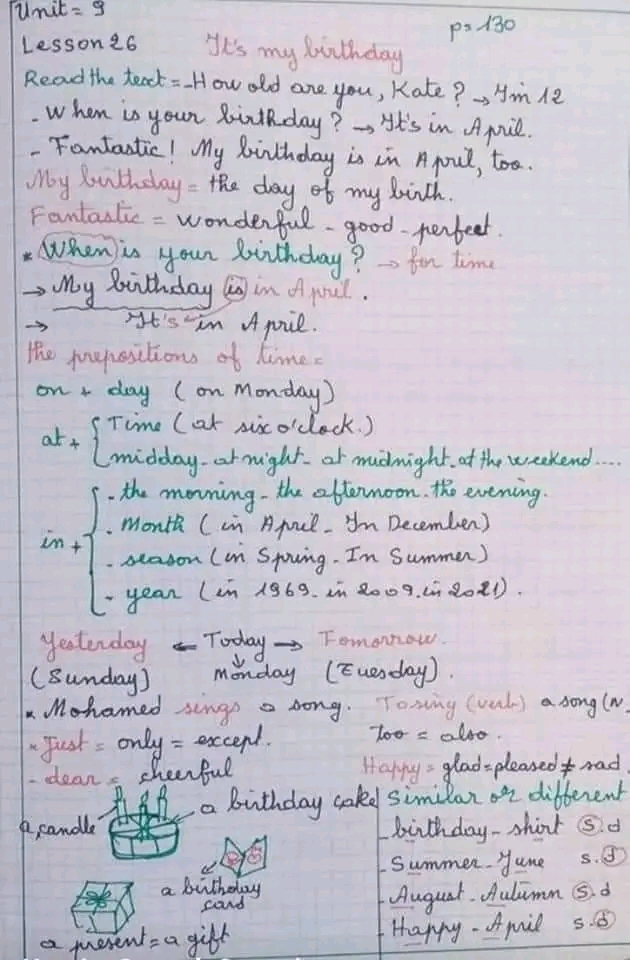 Unit = 9
p = 130
Lesson 26 It's my birthday
Read the text = - How old are you, Kate? → I'm 12
- When is your birthday? → It's in April.
- Fantastic! My birthday is in April, too.
My birthday = the day of my birth.
Fantastic = wonderful - good - perfect.
* When is your birthday? → for time
→ My birthday is in April.
→ It's in April.
the prepositions of time =
on + day (on Monday)
at + { Time (at six o'clock.)
midday - at night - at midnight. at the weekend....
in + { . the morning - the afternoon. the evening.
. Month (in April - In December)
. season (in Spring - In Summer)
. year (in 1969. in 2009. in 2021).
Yesterday ← Today → Tomorrow.
(Sunday) Monday (Tuesday).
* Mohamed sings a song. To sing (verb) a song (N
* Just = only = except. Too = also.
- dear = cheerful Happy = glad = pleased ≠ sad.
a candle
a birthday cake
a birthday
card
a present = a gift
Similar or different
- birthday - shirt s.d
- Summer - June s.d
- August - Autumn s.d
- Happy - April s.d